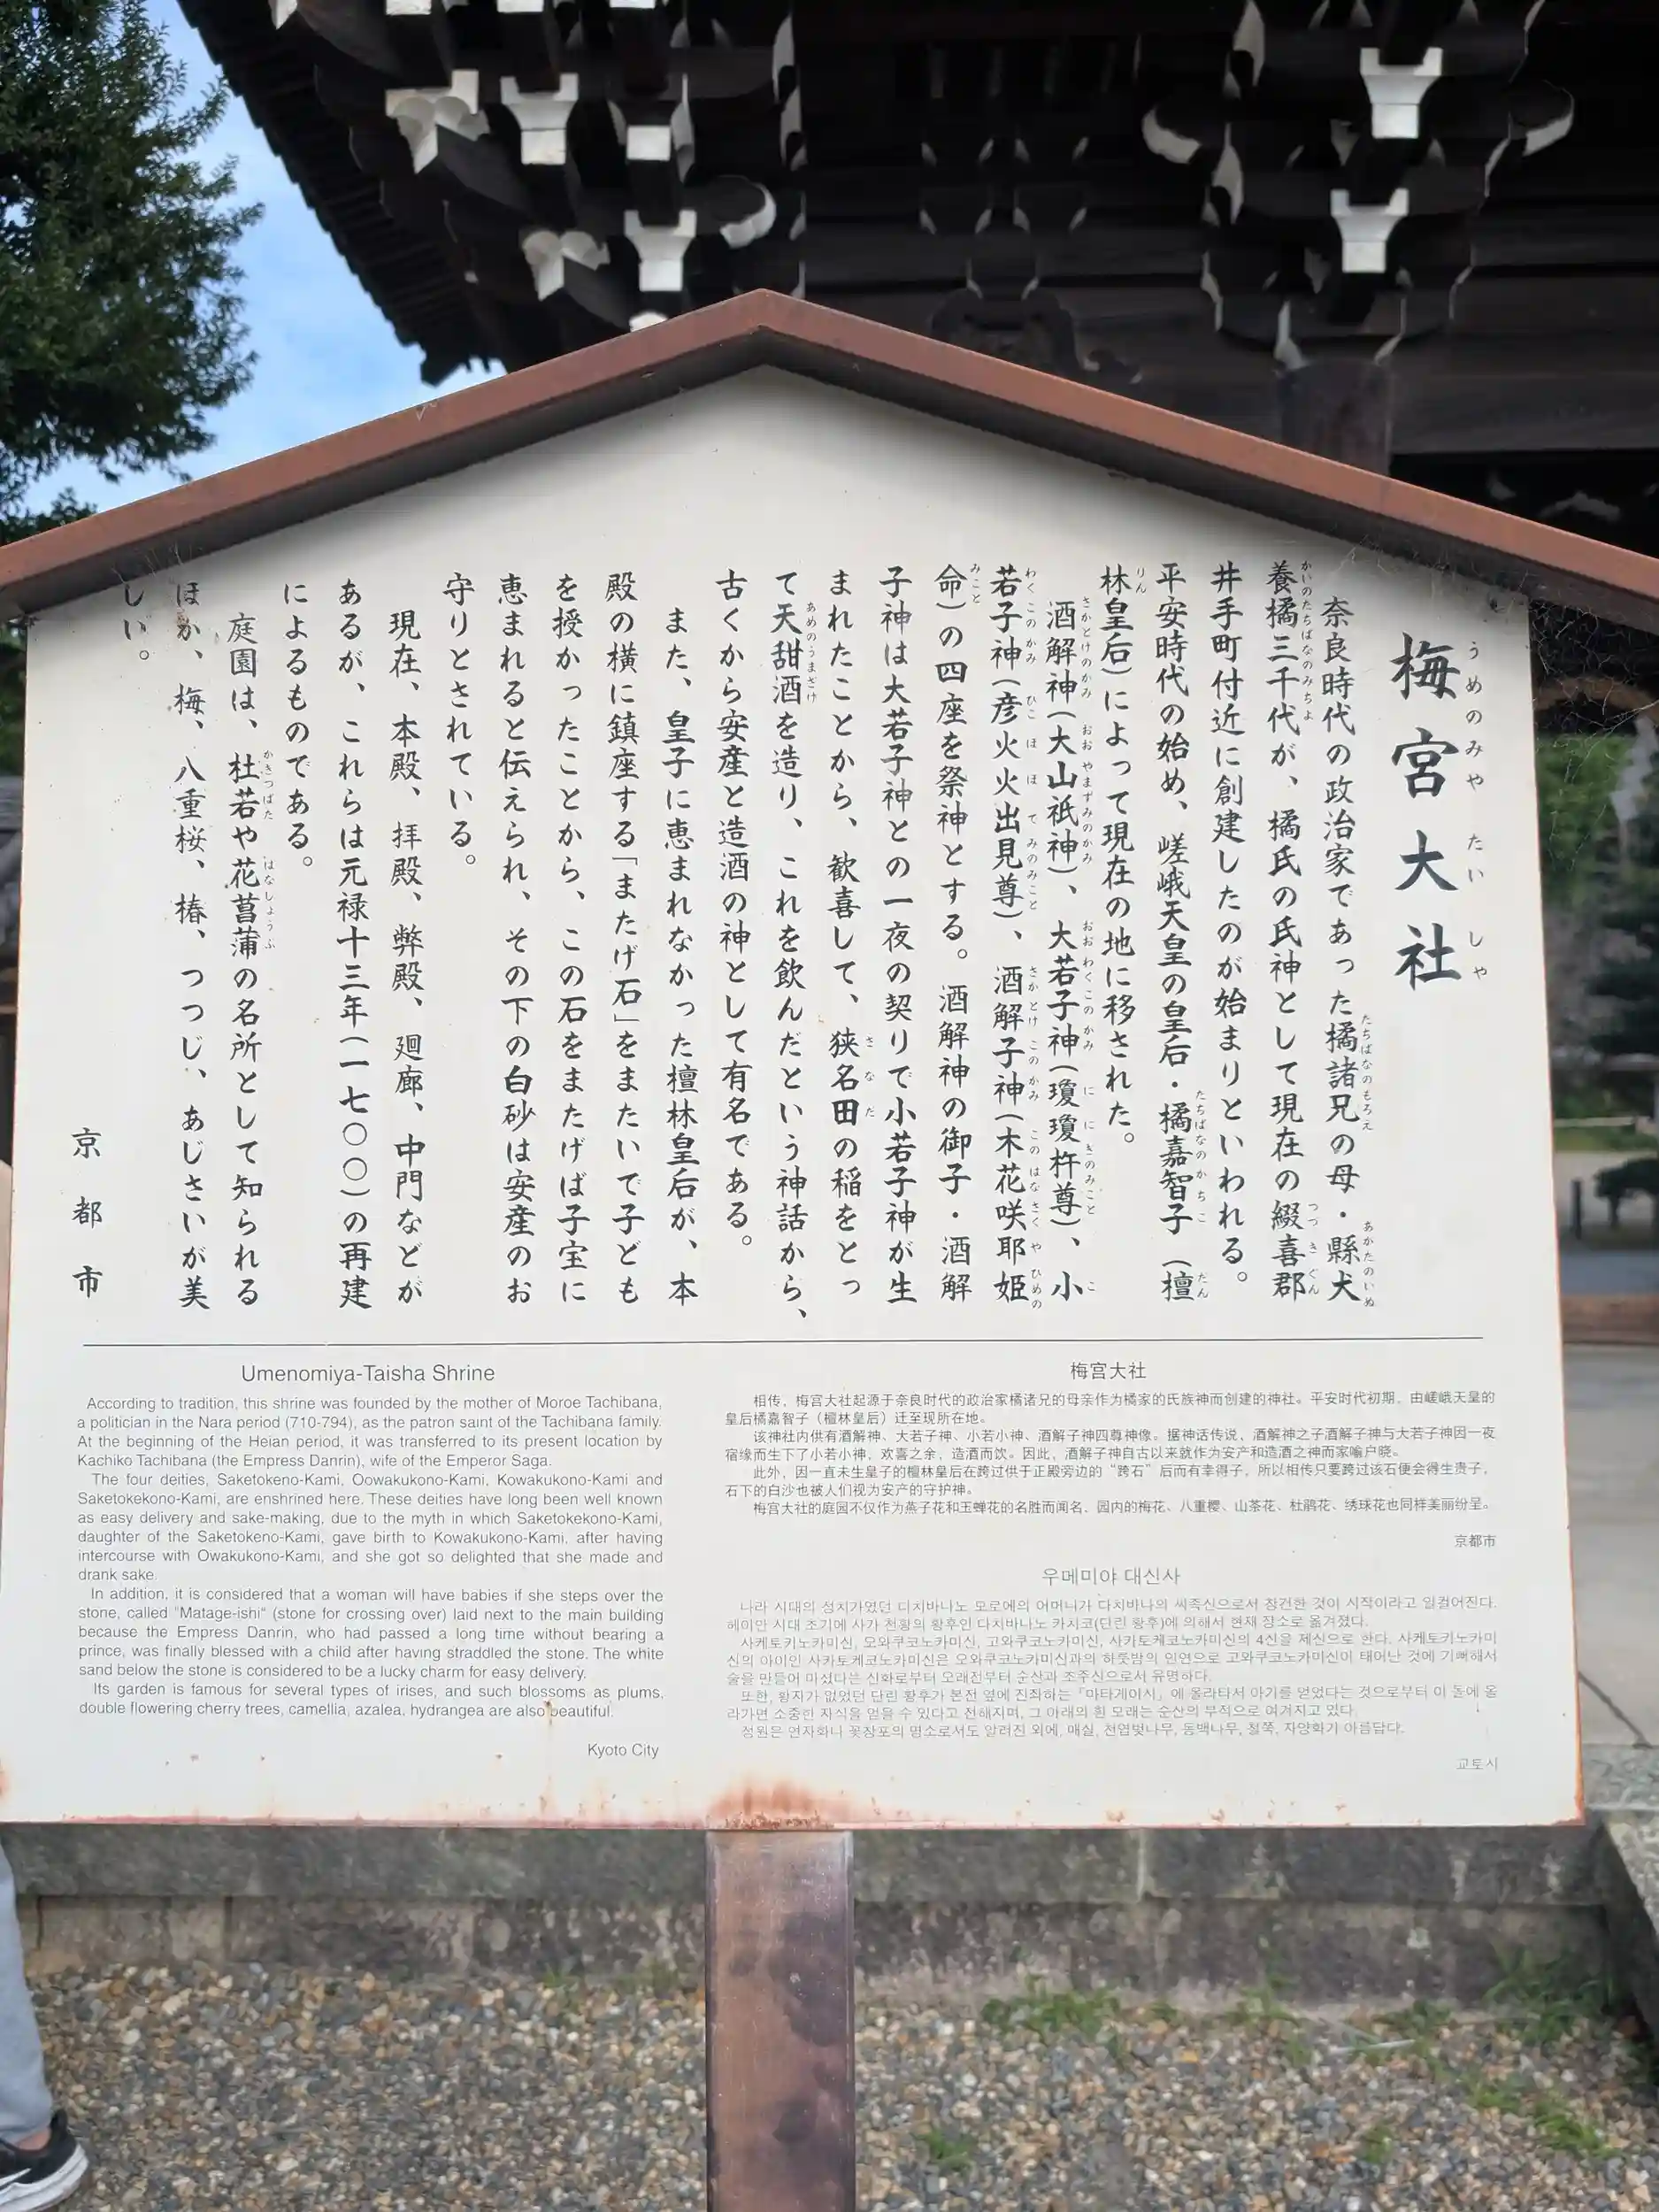 梅宮大社
奈良時代の政治家であった橘諸兄の母・縣犬
養橘三千代が、橘氏の氏神として現在の綴喜郡
井手町付近に創建したのが始まりといわれる。
平安時代の始め、嵯峨天皇の皇后・橘嘉智子（檀
林皇后）によって現在の地に移された。
酒解神（大山祇神）、大若子神（瓊瓊杵尊）、小
若子神（彦火火出見尊）、酒解子神（木花咲耶姫
命）の四座を祭神とする。酒解神の御子・酒解
子神は大若子神との一夜の契りで小若子神が生
まれたことから、歓喜して、狭名田の稲をとっ
て天甜酒を造り、これを飲んだという神話から、
古くから安産と造酒の神として有名である。
また、皇子に恵まれなかった檀林皇后が、本
殿の横に鎮座する「またげ石」をまたいで子ども
を授かったことから、この石をまたげば子宝に
恵まれると伝えられ、その下の白砂は安産のお
守りとされている。
現在、本殿、拝殿、弊殿、廻廊、中門などが
あるが、これらは元禄十三年（一七〇〇）の再建
によるものである。
庭園は、杜若や花菖蒲の名所として知られる
ほか、梅、八重桜、椿、つつじ、あじさいが美
しい。
京都市
Umenomiya-Taisha Shrine
According to tradition, this shrine was founded by the mother of Moroe Tachibana,
a politician in the Nara period (710-794), as the patron saint of the Tachibana family.
At the beginning of the Heian period, it was transferred to its present location by
Kachiko Tachibana (the Empress Danrin), wife of the Emperor Saga.
The four deities, Saketokeno-Kami, Oowakukono-Kami, Kowakukono-Kami and
Saketokekono-Kami, are enshrined here. These deities have long been well known
as easy delivery and sake-making, due to the myth in which Saketokekono-Kami,
daughter of the Saketokeno-Kami, gave birth to Kowakukono-Kami, after having
intercourse with Owakukono-Kami, and she got so delighted that she made and
drank sake.
In addition, it is considered that a woman will have babies if she steps over the
stone, called "Matage-ishi" (stone for crossing over) laid next to the main building
because the Empress Danrin, who had passed a long time without bearing a
prince, was finally blessed with a child after having straddled the stone. The white
sand below the stone is considered to be a lucky charm for easy delivery.
Its garden is famous for several types of irises, and such blossoms as plums,
double flowering cherry trees, camellia, azalea, hydrangea are also beautiful.
Kyoto City
梅宫大社
相传，梅宫大社起源于奈良时代的政治家橘诸兄的母亲作为橘家的氏族神而创建的神社。平安时代初期，由嵯峨天皇的
皇后橘嘉智子（檀林皇后）迁至现所在地。
该神社内供有酒解神、大若子神、小若小神、酒解子神四尊神像。据神话传说，酒解神之子酒解子神与大若子神因一夜
宿缘而生下了小若小神，欢喜之余，造酒而饮。因此，酒解子神自古以来就作为安产和造酒之神而家喻户晓。
此外，因一直未生皇子的檀林皇后在跨过供于正殿旁边的“跨石”后而有幸得子，所以相传只要跨过该石便会得生贵子，
石下的白沙也被人们视为安产的守护神。
梅宫大社的庭园不仅作为燕子花和玉蝉花的名胜而闻名，园内的梅花、八重樱、山茶花、杜鹃花、绣球花也同样美丽纷呈。
京都市
우메미야 대신사
나라 시대의 정치가였던 다치바나노 모로에의 어머니가 다치바나의 씨족신으로서 창건한 것이 시작이라고 일컬어진다.
헤이안 시대 초기에 사가 천황의 황후인 다치바나노 카치코(단린 황후)에 의해서 현재 장소로 옮겨졌다.
사케토키노카미신, 오와쿠코노카미신, 고와쿠코노카미신, 사카토케코노카미신의 4신을 제신으로 한다. 사케토키노카미
신의 아이인 사카토케코노카미신은 오와쿠코노카미신과의 하룻밤의 인연으로 고와쿠코노카미신이 태어난 것에 기뻐해서
술을 만들어 마셨다는 신화로부터 오래전부터 순산과 조주신으로서 유명하다.
또한, 황자가 없었던 단린 황후가 본전 옆에 진좌하는 「마타게이시」에 올라타서 아기를 얻었다는 것으로부터 이 돌에 올
라가면 소중한 자식을 얻을 수 있다고 전해지며, 그 아래의 흰 모래는 순산의 부적으로 여겨지고 있다.
정원은 연자화나 꽃창포의 명소로서도 알려진 외에, 매실, 천엽벚나무, 동백나무, 철쭉, 자양화가 아름답다.
교토시